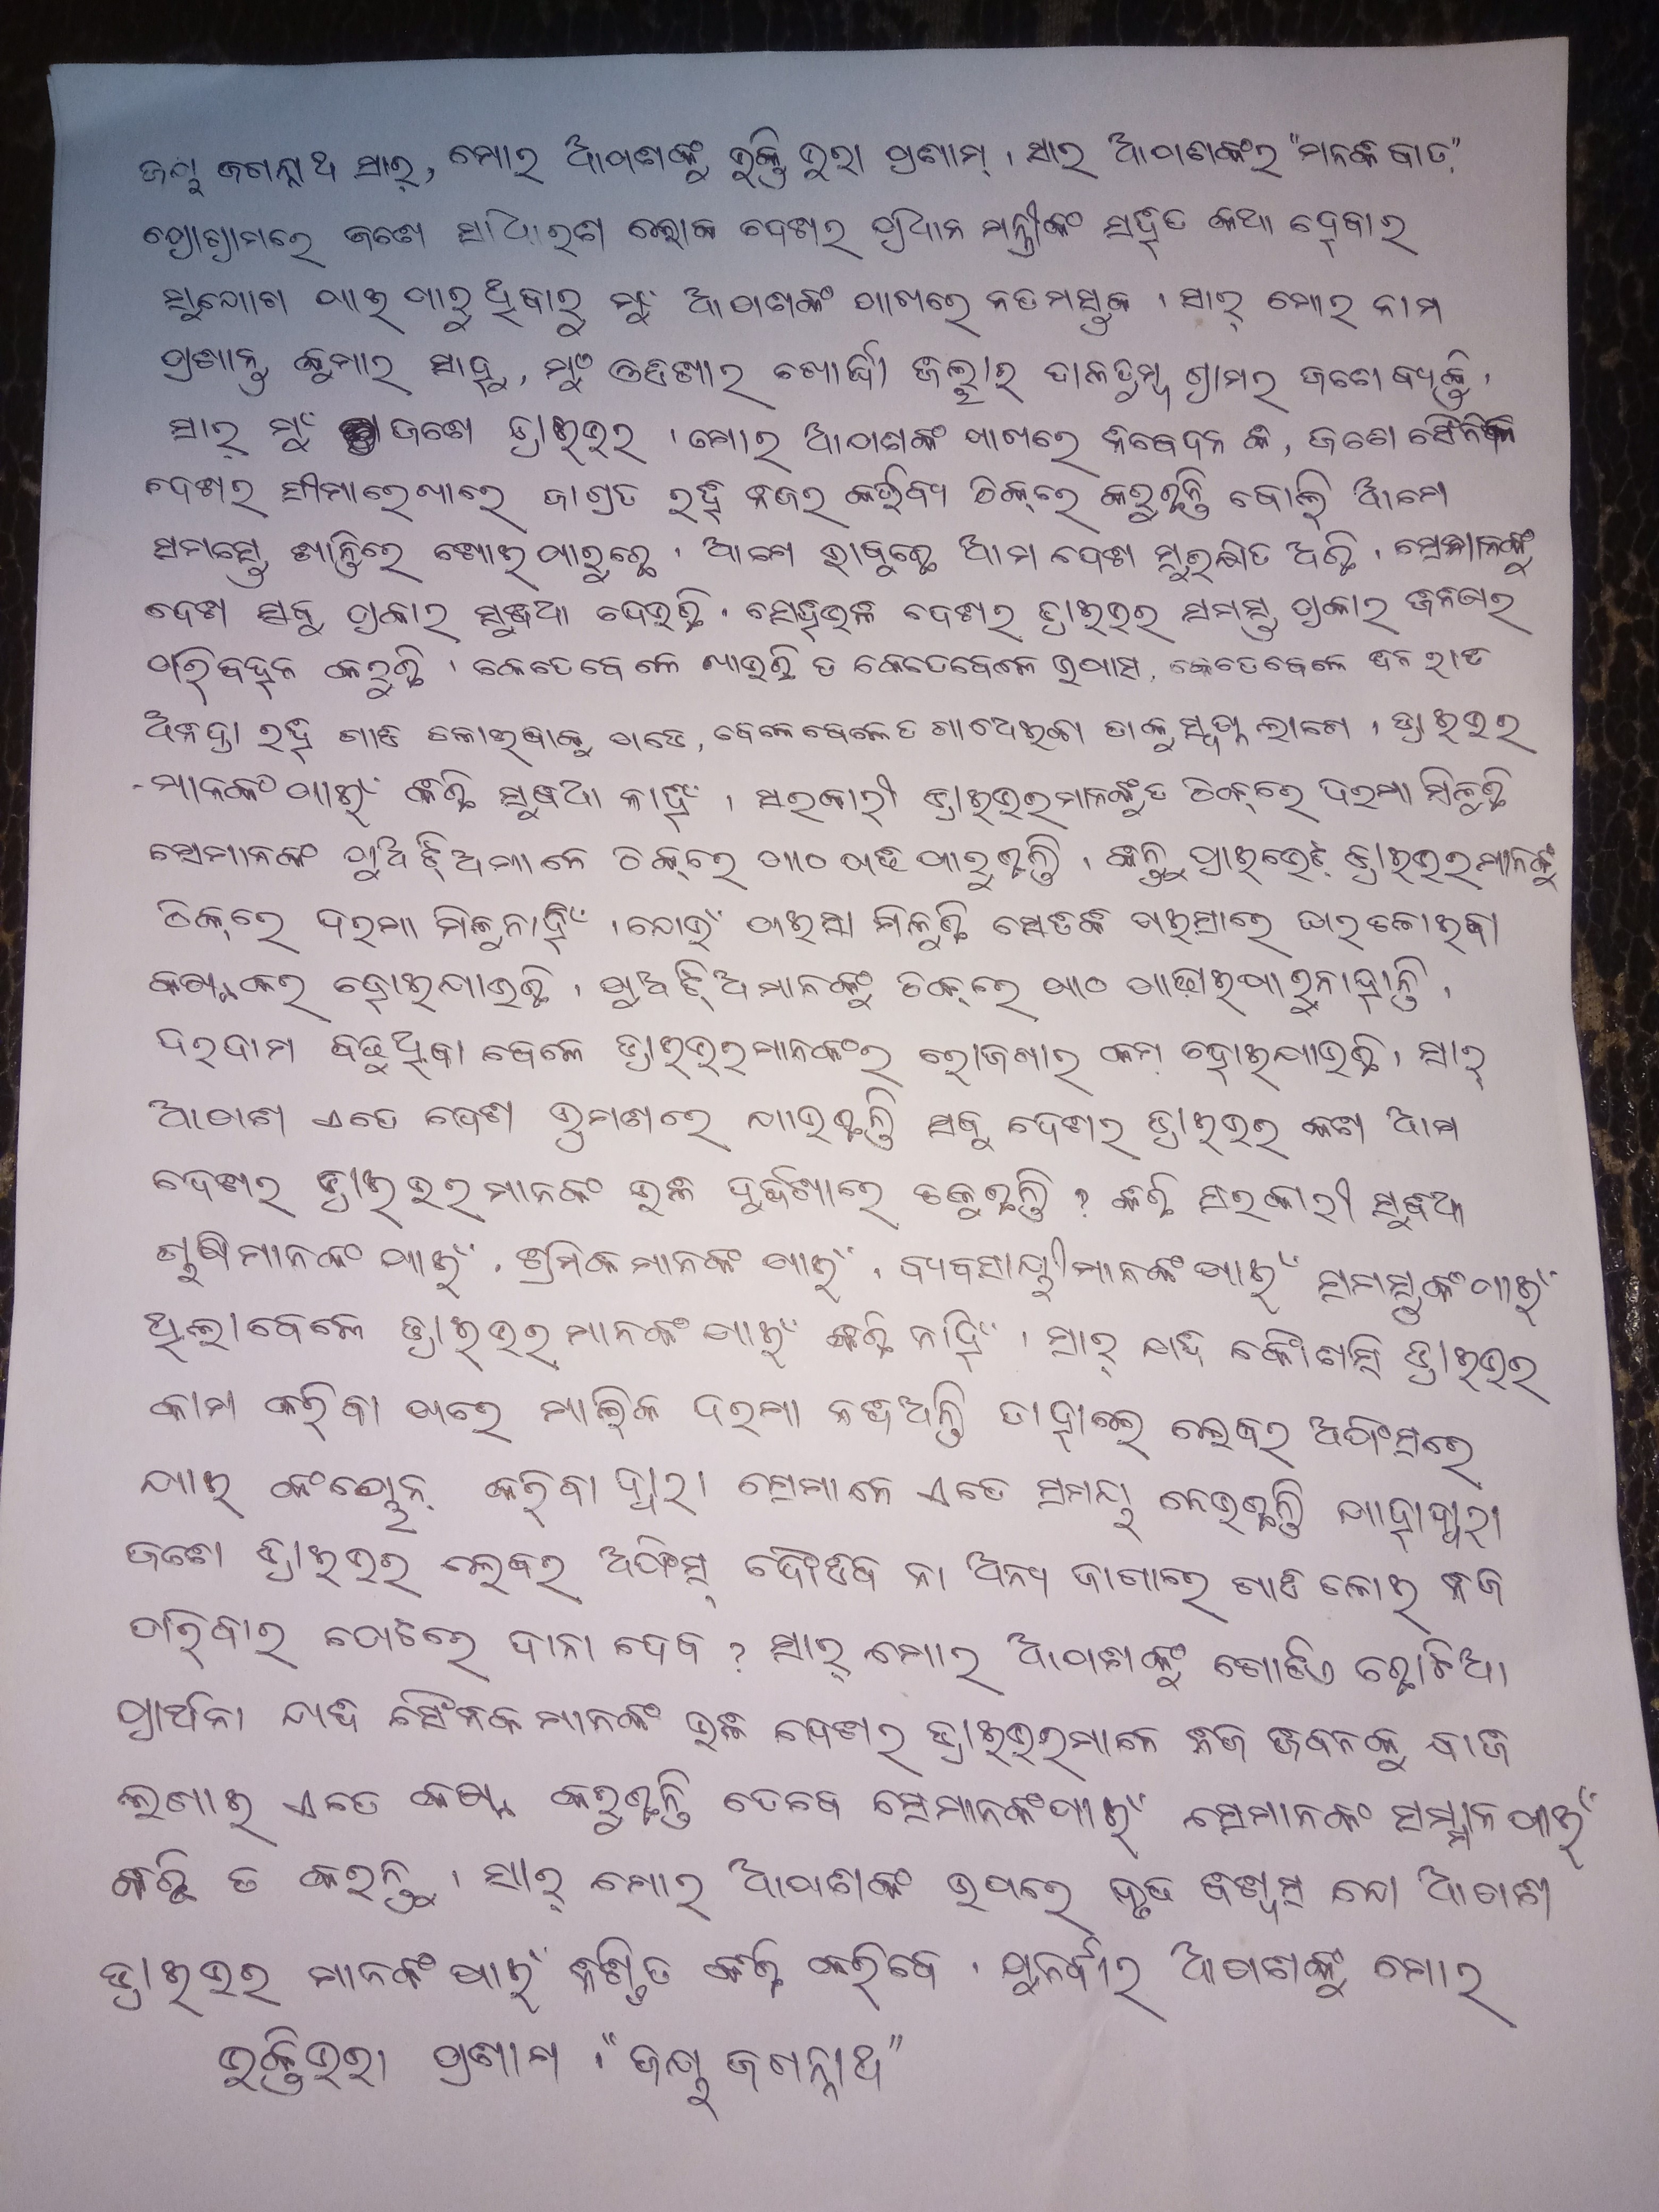 ଜୟ ଜଗନ୍ନାଥ ସାର୍, ମୋର ଆପଣଙ୍କୁ ଭକ୍ତି ଭରା ପ୍ରଣାମ୍ । ସାର ଆପଣଙ୍କର "ମନକ ବାତ୍"
ପ୍ରୋଗ୍ରାମରେ ଜଣେ ସାଧାରଣ ଲୋକ ଦେଶର ପ୍ରଧାନ ମନ୍ତ୍ରୀଙ୍କ ସହିତ କଥା ହେବାର
ସୁଯୋଗ ପାଇ ପାରୁଥିବାରୁ ମୁଁ ଆପଣଙ୍କ ପାଖରେ ନତମସ୍ତକ । ସାର୍ ମୋର ନାମ
ପ୍ରଶାନ୍ତ କୁମାର ସାହୁ, ମୁଁ ଓଡିଶାର ଖୋର୍ଦ୍ଧା ଜିଲ୍ଲାର ଗ୍ରାମର ଜଣେ ବ୍ୟକ୍ତି ।
ସାର୍ ମୁଁ ଜଣେ ଡ୍ରାଇଭର । ମୋର ଆପଣଙ୍କ ପାଖରେ ନିବେଦନ କି, ଜଣେ ସୈନିକ
ଦେଶର ସୀମାରେଖାରେ ଜାଗ୍ରତ ରହି ନିଜର କର୍ତ୍ତବ୍ୟ ଠିକ୍‌ରେ କରୁଛନ୍ତି ବୋଲି ଆମେ
ସମସ୍ତେ ଶାନ୍ତିରେ ଶୋଇ ପାରୁଛେ । ଆମେ ଭାବୁଛେ ଆମ ଦେଶ ସୁରକ୍ଷିତ ଅଛି । ସେମାନଙ୍କୁ
ଦେଶ ସବୁ ପ୍ରକାର ସୁବିଧା ଦେଉଛି । ସେହିଭଳି ଦେଶର ଡ୍ରାଇଭର ସମସ୍ତ ପ୍ରକାର ଜିନିଷର
ପରିବହନ କରୁଛି । କେତେବେଳେ ଖାଉଛି ତ କେତେବେଳେ ଉପାସ, କେତେବେଳେ ଦିନ ରାତି
ଅନିଦ୍ରା ରହି ଗାଡି ଚଳାଇବାକୁ ପଡେ, ବେଳେବେଳେତ ଗାଧୋଇବା ତାକୁ ସ୍ୱପ୍ନ ଲାଗେ । ଡ୍ରାଇଭର
-ମାନଙ୍କ ପାଇଁ କିଛି ସୁବିଧା ନାହିଁ । ସରକାରୀ ଡ୍ରାଇଭରମାନଙ୍କୁତ ଠିକ୍‌ରେ ଦରମା ମିଳୁଛି
ସେମାନଙ୍କ ପୁଅଝିଅମାନେ ଠିକ୍‌ରେ ପାଠ ପଢି ପାରୁଛନ୍ତି । କିନ୍ତୁ ପ୍ରାଇଭେଟ୍ ଡ୍ରାଇଭରମାନଙ୍କୁ
ଠିକ୍‌ରେ ଦରମା ମିଳୁନାହିଁ । ଯୋଉଁ ପଇସା ମିଳୁଛି ସେତକି ପଇସାରେ ଘର ଚଳାଇବା
କଷ୍ଟକର ହୋଇଯାଉଛି । ପୁଅଝିଅମାନଙ୍କୁ ଠିକ୍‌ରେ ପାଠ ପଢ଼ାଇପାରୁନାହାନ୍ତି ।
ଦରଦାମ ବଢୁଥିବା ବେଳେ ଡ୍ରାଇଭରମାନଙ୍କର ରୋଜଗାର କମ୍ ହୋଇଯାଉଛି । ସାର୍
ଆପଣ ଏତେ ଦେଶ ଭ୍ରମଣରେ ଯାଉଛନ୍ତି ସବୁ ଦେଶର ଡ୍ରାଇଭର କଣ ଆମ
ଦେଶର ଡ୍ରାଇଭରମାନଙ୍କ ଭଳି ଦୁର୍ଦ୍ଦଶାରେ ଚଳୁଛନ୍ତି ? କିଛି ସରକାରୀ ସୁବିଧା
ଚାଷୀମାନଙ୍କ ପାଇଁ, ଶ୍ରମିକମାନଙ୍କ ପାଇଁ, ବ୍ୟବସାୟୀମାନଙ୍କ ପାଇଁ ସମସ୍ତଙ୍କ ପାଇଁ
ଥିଲାବେଳେ ଡ୍ରାଇଭରମାନଙ୍କ ପାଇଁ କିଛି ନାହିଁ । ସାର୍ ଯଦି କୌଣସି ଡ୍ରାଇଭର
କାମ କରିବା ପରେ ମାଲିକ ଦରମା ନଦିଅନ୍ତି ତାହାଲେ ଲେବର ଅଫିସରେ
ଯାଇ କଂପ୍ଲେନ୍ କରିବା ଦ୍ୱାରା ସେମାନେ ଏତେ ସମୟ ନେଉଛନ୍ତି ଯାହାଦ୍ୱାରା
ଜଣେ ଡ୍ରାଇଭର ଲେବର ଅଫିସ୍ ଦୌଡିବ ନା ଅନ୍ୟ ଜାଗାରେ ଗାଡି ଚଳାଇ ନିଜ
ପରିବାର ପେଟରେ ଦାନା ଦେବ ? ସାର୍ ମୋର ଆପଣଙ୍କୁ ଗୋଟିଏ ଛୋଟିଆ
ପ୍ରାର୍ଥନା ଯଦି ସୈନିକମାନଙ୍କ ଭଳି ଦେଶର ଡ୍ରାଇଭରମାନେ ନିଜ ଜିବନକୁ ବାଜି
ଲଗାଇ ଏତେ କଷ୍ଟ କରୁଛନ୍ତି ତେବେ ସେମାନଙ୍କପାଇଁ ସେମାନଙ୍କ ସମ୍ମାନ ପାଇଁ
କିଛି ତ କରନ୍ତୁ । ସାର୍ ମୋର ଆପଣଙ୍କ ଉପରେ ଦୃଢ ବିଶ୍ୱାସ ଯେ ଆପଣ
ଡ୍ରାଇଭର ମାନଙ୍କ ପାଇଁ ନିଶ୍ଚିତ କିଛି କରିବେ । ପୁନର୍ବାର ଆପଣଙ୍କୁ ମୋର
ଭକ୍ତିଭରା ପ୍ରଣାମ । "ଜୟ ଜଗନ୍ନାଥ"